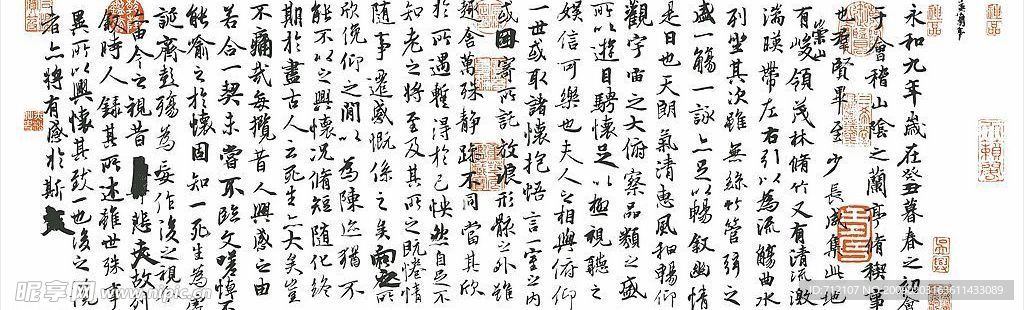 永和九年歲在癸丑暮春之初會
于會稽山陰之蘭亭脩稧事
也羣賢畢至少長咸集此地
有崇山峻領茂林脩竹又有清流激
湍暎帶左右引以為流觴曲水
列坐其次雖無絲竹管弦之
盛一觴一詠亦足以暢敘幽情
是日也天朗氣清惠風和暢仰
觀宇宙之大俯察品類之盛
所以遊目騁懷足以極視聽之
娛信可樂也夫人之相與俯仰
一世或取諸懷抱悟言一室之內
或因寄所託放浪形骸之外雖
趣舍萬殊靜躁不同當其欣
於所遇暫得於己怏然自足不
知老之將至及其所之既惓情
隨事遷感慨係之矣向之所
欣俛仰之閒以為陳迹猶不
能不以之興懷況脩短隨化終
期於盡古人云死生亦大矣豈
不痛哉每攬昔人興感之由
若合一契未嘗不臨文嗟悼不
能喻之於懷固知一死生為虛
誕齊彭殤為妄作後之視
今亦由今之視昔悲夫故列
敘時人錄其所述雖世殊事
異所以興懷其致一也後之攬
者亦將有感於斯文
昵享网 www.nipic.cn